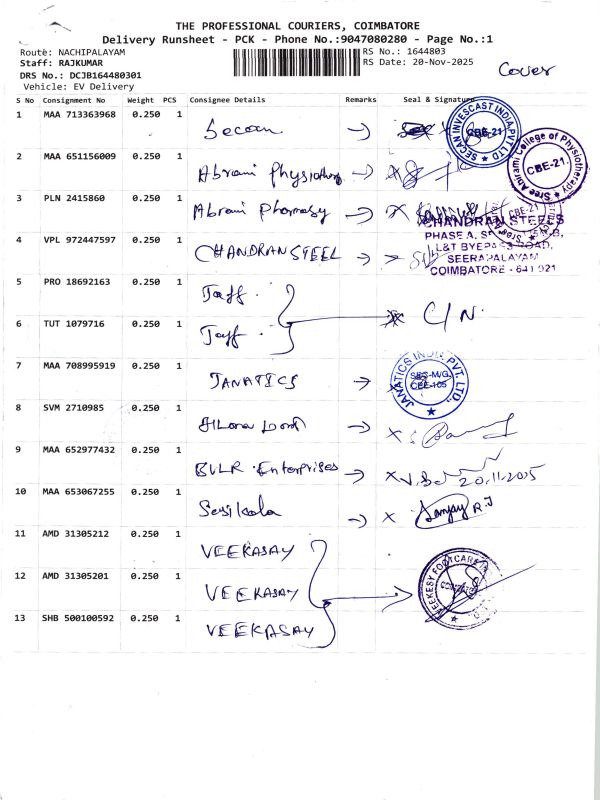 THE PROFESSIONAL COURIERS, COIMBATORE
Delivery Runsheet - PCK - Phone No.:9047080280 - Page No.:1
Route: NACHIPALAYAM RS No.: 1644803
Staff: RAJKUMAR RS Date: 20-Nov-2025
DRS No.: DCJB164480301 Cover
Vehicle: EV Delivery
S No Consignment No Weight PCS Consignee Details Remarks Seal & Signature
1 MAA 713363968 0.250 1 Secan
SECAN INVESCAST INDIA PVT LTD CBE-21
2 MAA 651156009 0.250 1 Abrami Physiotherapy
Sree Abirami College of Physiotherapy CBE-21.
3 PLN 2415860 0.250 1 Abrami Pharmasy
CBE-21
4 VPL 972447597 0.250 1 CHANDRAN STEEL
CHANDRAN STEELS
PHASE A,
L&T BYEPASS ROAD,
SEERAPALAYAM
COIMBATORE - 641 021
5 PRO 18692163 0.250 1 Jaff. C/N.
6 TUT 1079716 0.250 1 Jaff.
7 MAA 708995919 0.250 1 JANATICS
JANATICS INDIA PVT. LTD., CBE-105
8 SVM 2710985 0.250 1
9 MAA 652977432 0.250 1 BVLR Enterprises 20.11.2025
10 MAA 653067255 0.250 1 Sasikala Sanjay R.J
11 AMD 31305212 0.250 1 VEEKASAY
12 AMD 31305201 0.250 1 VEEKASAY
VEEKESY FOOTCARE
13 SHB 500100592 0.250 1 VEEKASAY